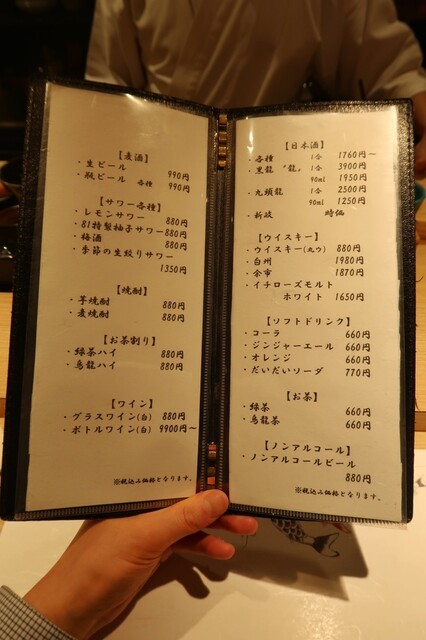 【麦酒】
・生ビール 990円
・瓶ビール 各種 990円
【サワー各種】
・レモンサワー 880円
・81特製柚子サワー 880円
・梅酒 880円
・季節の生絞りサワー
1350円
【焼酎】
・芋焼酎 880円
・麦焼酎 880円
【お茶割り】
・緑茶ハイ 880円
・烏龍ハイ 880円
【ワイン】
・グラスワイン(白) 880円
・ボトルワイン(白) 9900円～
※税込み価格となります。
【日本酒】
・各種 1合 1760円～
・黒龍 “龍” 1合 3900円
90ml 1950円
・九頭龍 1合 2500円
90ml 1250円
・新政 時価
【ウイスキー】
・ウイスキー(丸ウ) 880円
・白州 1980円
・余市 1870円
・イチローズモルト
ホワイト 1650円
【ソフトドリンク】
・コーラ 660円
・ジンジャーエール 660円
・オレンジ 660円
・だいだいソーダ 770円
【お茶】
・緑茶 660円
・烏龍茶 660円
【ノンアルコール】
・ノンアルコールビール
880円
※税込み価格となります。